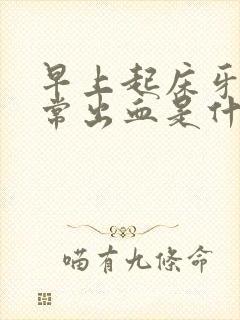 早上起床牙
常出血是什
喵有九條命